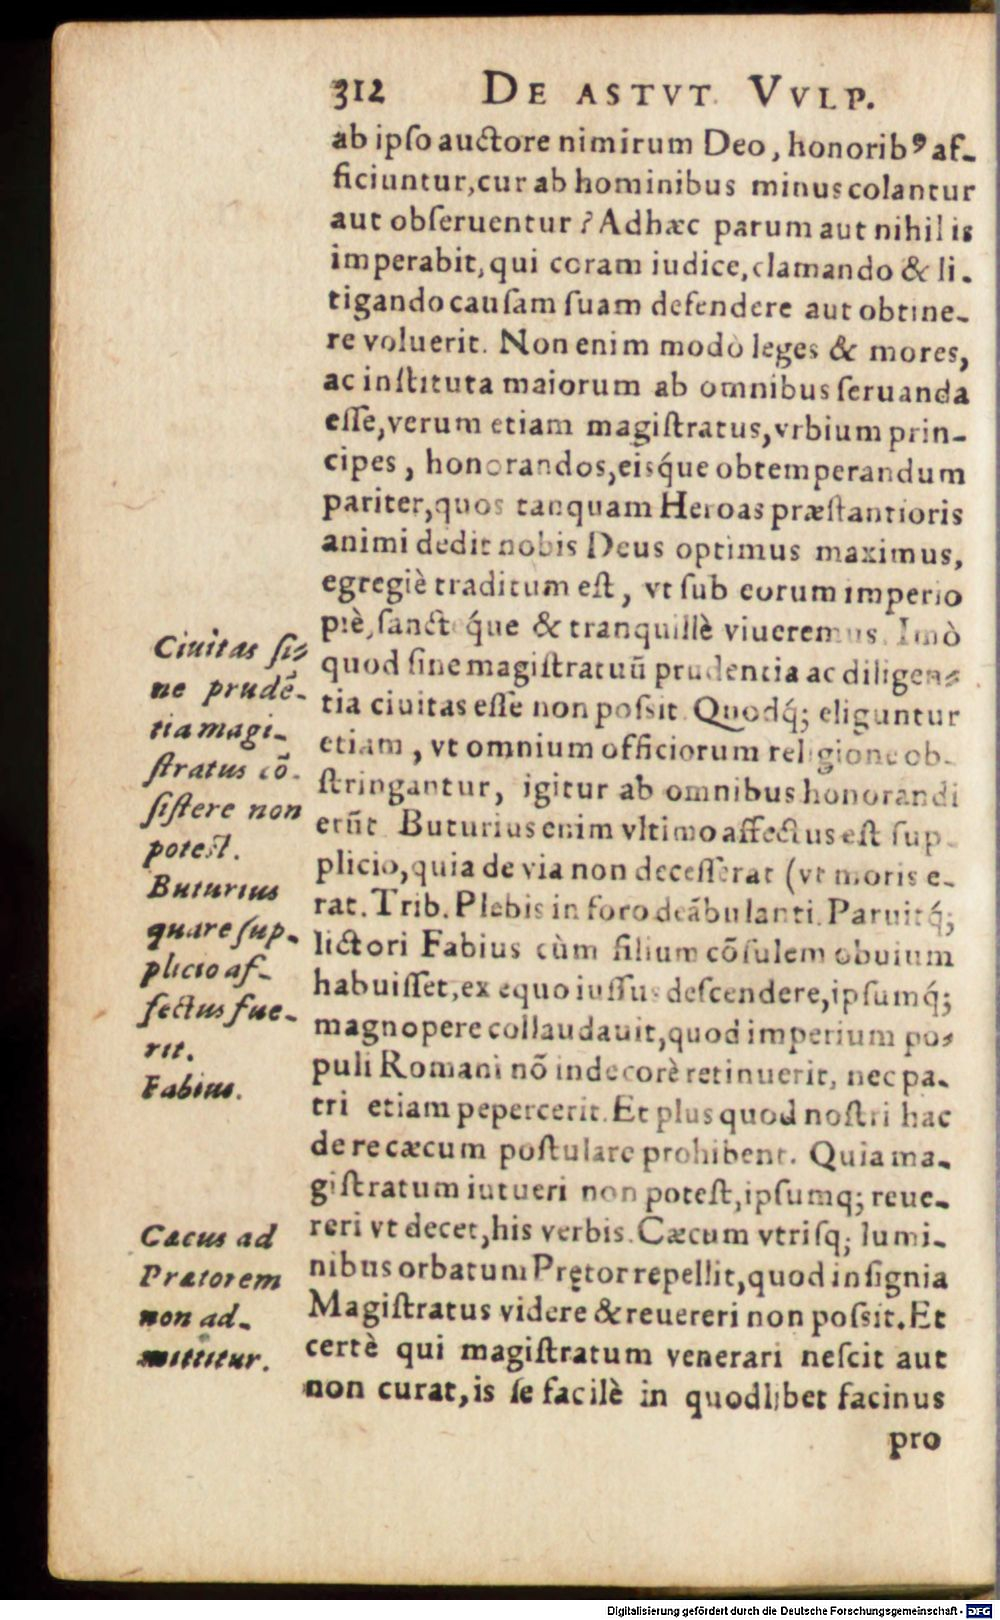 312 DE ASTVT. VVLP.
ab ipſo auctore nimirum Deo, honoribꝰ af-
ficiuntur, cur ab hominibus minus colantur
aut obſeruentur? Adhæc parum aut nihil is
imperabit, qui coram iudice, clamando & li-
tigando cauſam ſuam defendere aut obtine-
re voluerit. Non enim modò leges & mores,
ac inſtituta maiorum ab omnibus ſeruanda
eſſe, verum etiam magiſtratus, vrbium prin-
cipes, honorandos, eisq́ue obtemperandum
pariter, quos tanquam Heroas præſtantioris
animi dedit nobis Deus optimus maximus,
egregiè traditum eſt, vt ſub eorum imperio
piè, ſancteq́ue & tranquillè viueremus. Imò
quod ſine magiſtratuū prudentia ac diligen-
tia ciuitas eſſe non poſsit. Quodq́; eliguntur
etiam, vt omnium officiorum religione ob-
ſtringantur, igitur ab omnibus honorandi
erūt. Buturius enim vltimo affectus eſt ſup-
plicio, quia de via non deceſſerat (vt moris e-
rat. Trib. Plebis in foro deābulanti. Paruitq́;
lictori Fabius cùm filium cōſulem obuium
habuiſſet, ex equo iuſſus deſcendere, ipſumq́;
magnopere collaudauit, quod imperium po-
puli Romani nō indecorè retinuerit, nec pa-
tri etiam pepercerit. Et plus quod noſtri hac
de re cæcum poſtulare prohibent. Quia ma-
giſtratum iutueri non poteſt, ipſumq; reue-
reri vt decet, his verbis. Cæcum vtriſq; lumi-
nibus orbatum Prętor repellit, quod inſignia
Magiſtratus videre & reuereri non poſsit. Et
certè qui magiſtratum venerari neſcit aut
non curat, is ſe facilè in quodlibet facinus
pro
Ciuitas ſi-
ne prudē-
tia magi-
ſtratus cō-
ſiſtere non
poteſt.
Buturius
quare ſup-
plicio af-
fectus fue-
rit.
Fabius.
Cæcus ad
Prætorem
non ad-
mittitur.
Digitalisierung gefördert durch die Deutsche Forschungsgemeinschaft - DFG